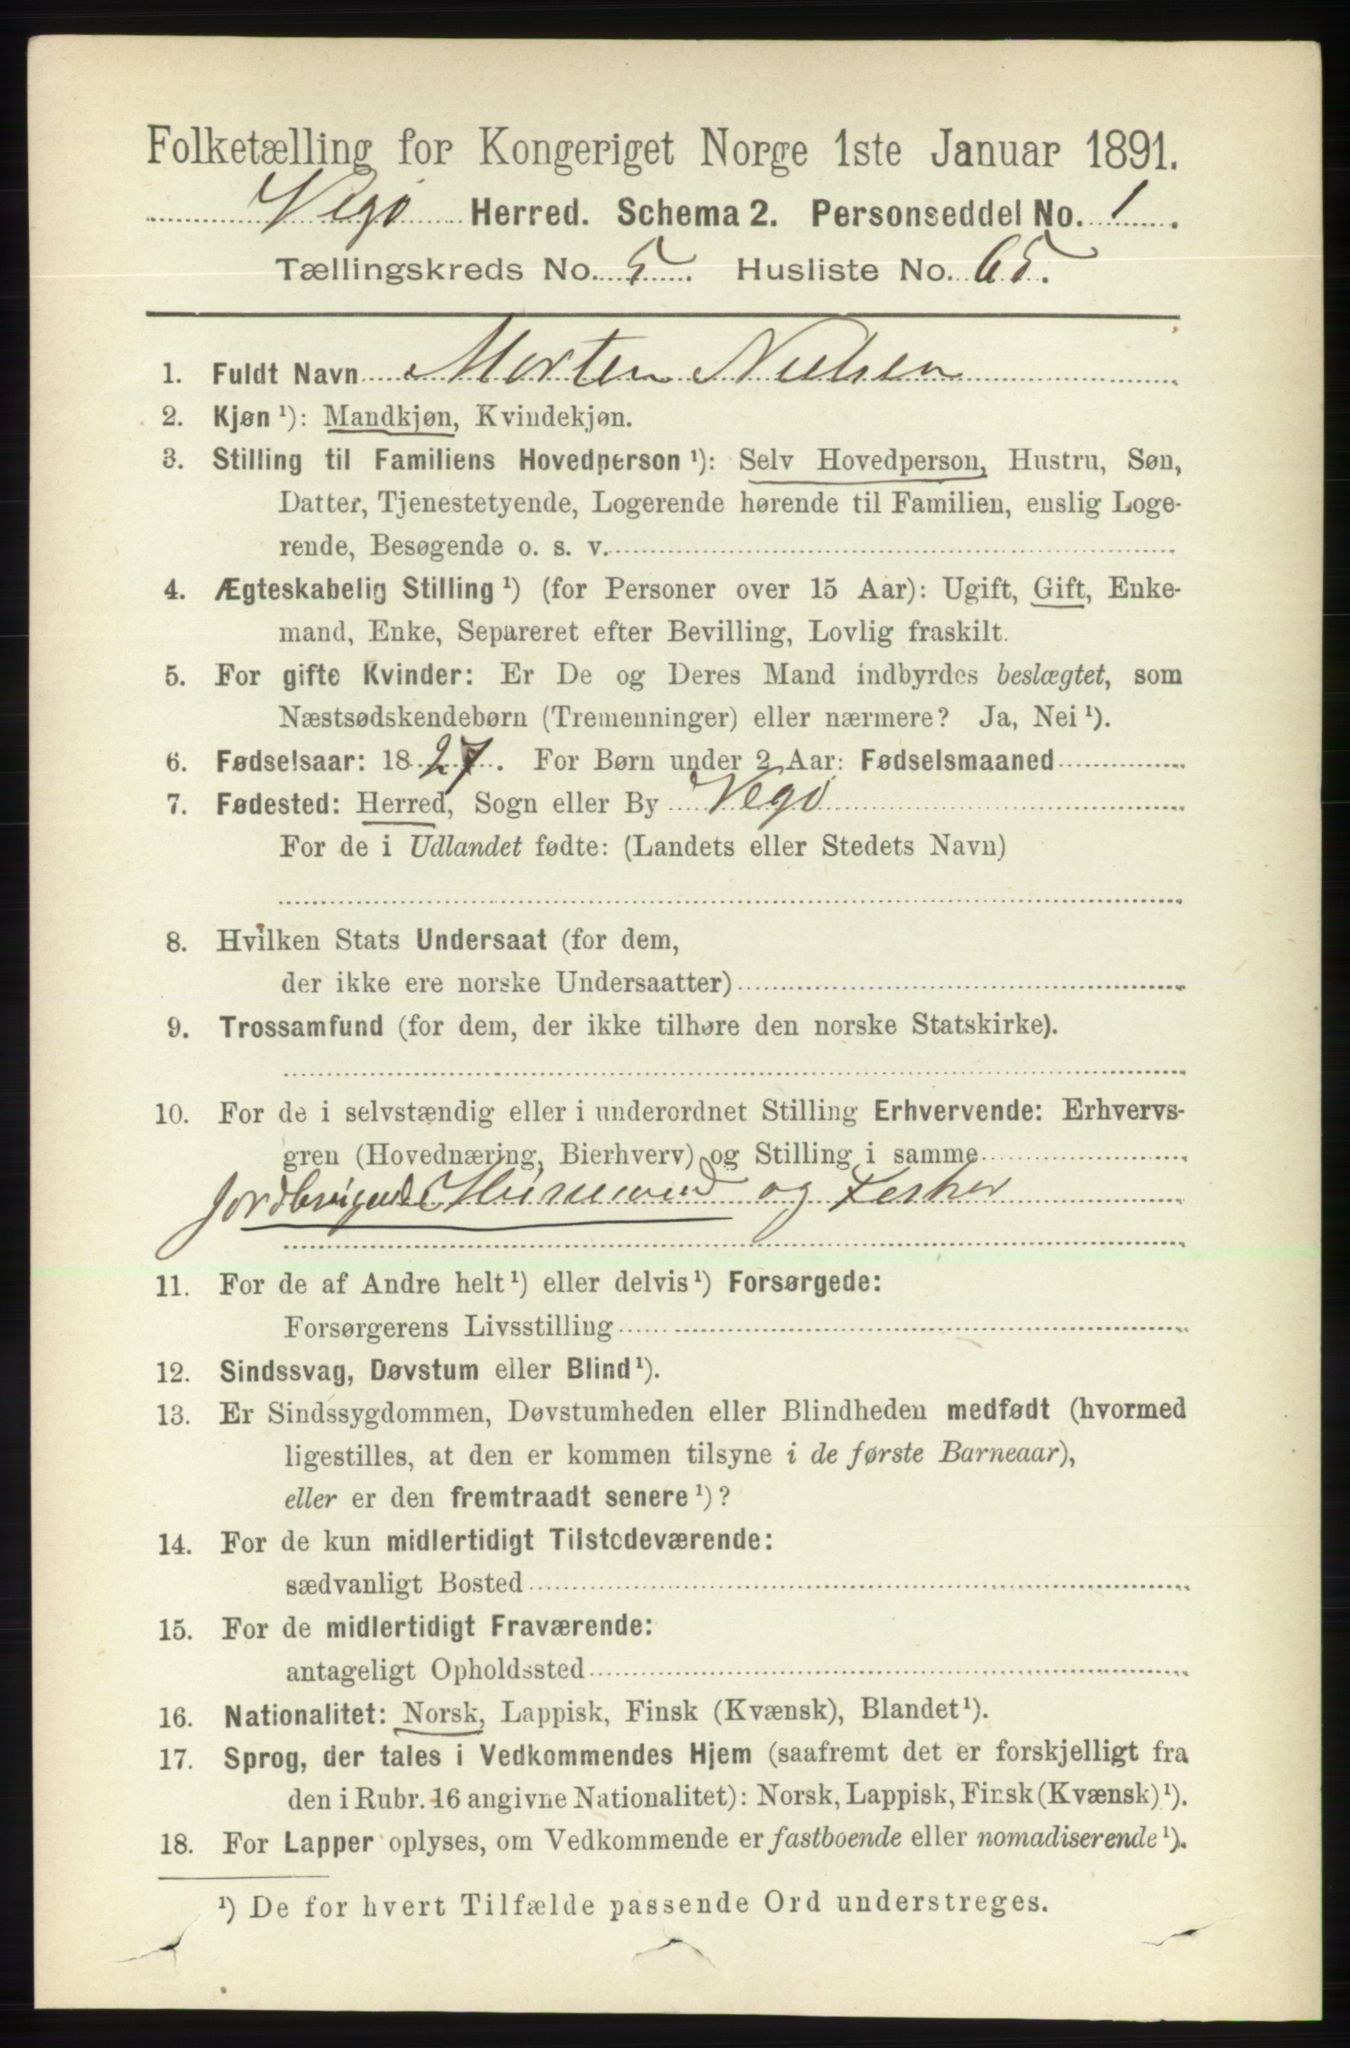 Folketælling for Kongeriget Norge 1ste Januar 1891.
Vegø Herred. Schema 2. Personseddel No. 1.
Tællingskreds No. 5. Husliste No. 65.
1. Fuldt Navn Morten Nielsen
2. Kjøn ¹): Mandkjøn, Kvindekjøn.
3. Stilling til Familiens Hovedperson ¹): Selv Hovedperson, Hustru, Søn,
Datter, Tjenestetyende, Logerende hørende til Familien, enslig Loge-
rende, Besøgende o. s. v.
4. Ægteskabelig Stilling ¹) (for Personer over 15 Aar): Ugift, Gift, Enke-
mand, Enke, Separeret efter Bevilling, Lovlig fraskilt.
5. For gifte Kvinder: Er De og Deres Mand indbyrdes beslægtet, som
Næstsødskendebørn (Tremenninger) eller nærmere? Ja, Nei ¹).
6. Fødselsaar: 1827. For Børn under 2 Aar: Fødselsmaaned
7. Fødested: Herred, Sogn eller By Vegø
For de i Udlandet fødte: (Landets eller Stedets Navn)
8. Hvilken Stats Undersaat (for dem,
der ikke ere norske Undersaatter)
9. Trossamfund (for dem, der ikke tilhøre den norske Statskirke).
10. For de i selvstændig eller i underordnet Stilling Erhvervende: Erhvervs-
gren (Hovednæring, Bierhverv) og Stilling i samme
Jordbrugende Husmand og Fesker
11. For de af Andre helt ¹) eller delvis ¹) Forsørgede:
Forsørgerens Livsstilling
12. Sindssvag, Døvstum eller Blind ¹).
13. Er Sindssygdommen, Døvstumheden eller Blindheden medfødt (hvormed
ligestilles, at den er kommen tilsyne i de første Barneaar),
eller er den fremtraadt senere ¹)?
14. For de kun midlertidigt Tilstedeværende:
sædvanligt Bosted
15. For de midlertidigt Fraværende:
antageligt Opholdssted
16. Nationalitet: Norsk, Lappisk, Finsk (Kvænsk), Blandet ¹).
17. Sprog, der tales i Vedkommendes Hjem (saafremt det er forskjelligt fra
den i Rubr. 16 angivne Nationalitet): Norsk, Lappisk, Finsk (Kvænsk) ¹).
18. For Lapper oplyses, om Vedkommende er fastboende eller nomadiserende ¹).
¹) De for hvert Tilfælde passende Ord understreges.